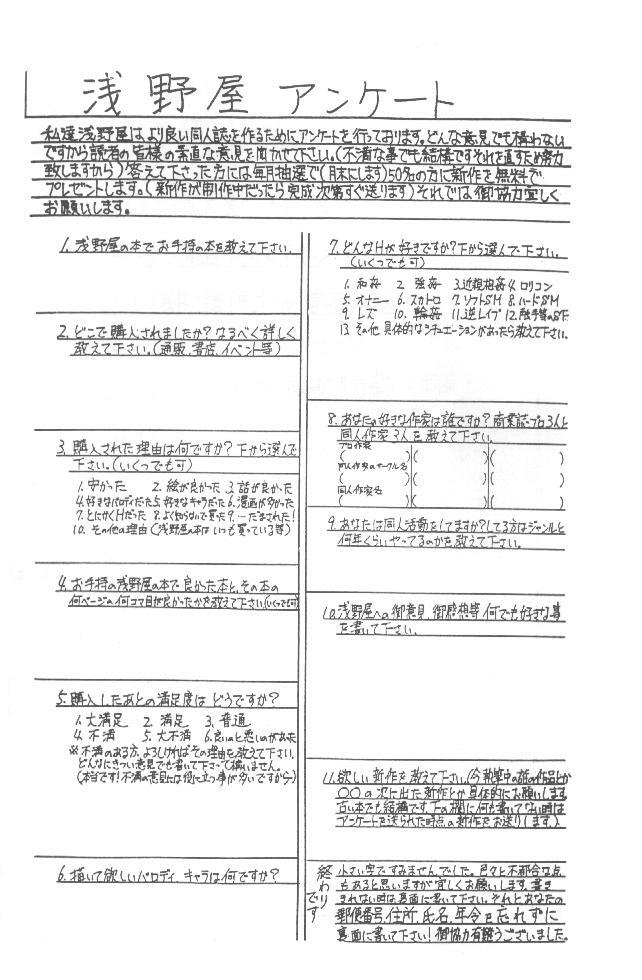 浅野屋 アンケート
私達浅野屋はより良い同人誌を作るためにアンケートを行っております。どんな意見でも構わない
ですから読者の皆様の素直な意見を聞かせて下さい。(不満な事でも結構ですそれを直すため努力
致しますから)答えて下さった方には毎月抽選で(月末にします)50名の方に新作を無料で
プレゼントします。(新作が制作中だったら完成次第すぐ送ります)それでは御協力宜しく
お願いします。
1. 浅野屋の本でお手持の本を教えて下さい.
2. どこで購入されましたか?なるべく詳しく
教えて下さい。(通販、書店、イベント等)
3. 購入された理由は何ですか?下から選んで
下さい。(いくつでも可)
1. 安かった 2. 絵が良かった 3. 話が良かった
4. 好きなパロディだった 5. 好きなキャラだった 6. 漫画が多かった
7. とにかくHだった 8. よく知らないで買った 9. …だまされた!
10. その他の理由(浅野屋の本はいつも買っている等)
4. お手持の浅野屋の本で良かった本と、その本の
何ページの何コマ目が良かったかを教えて下さい(いくつでも可)
5. 購入したあとの満足度はどうですか?
1. 大満足 2. 満足 3. 普通
4. 不満 5. 大不満 6. 良いのと悪いのがあった
※不満のある方、よろしければその理由を教えて下さい、
どんなにきつい意見でも書いて下さって構いません。
(本当です!不満の意見には役に立つ事が多いですから)
6. 描いて欲しいパロディ、キャラは何ですか?
7. どんなHが好きですか?下から選んで下さい。
(いくつでも可)
1. 和姦 2. 強姦 3. 近親相姦 4. ロリコン
5. オナニー 6. スカトロ 7. ソフトSM 8. ハードSM
9. レズ 10. 輪姦 11. 逆レイプ 12. 触手等のSF
13. その他 具体的なシチュエーションがあったら教えて下さい.
8. あなたの好きな作家は誰ですか?商業誌・プロ3人と
同人作家3人を教えて下さい。
プロ作家 ( )( )( )
同人作家のサークル名 ( )( )( )
同人作家名 ( )( )( )
9. あなたは同人活動をしてますか?してる方はジャンルと
何年くらいやってるのかを教えて下さい。
10. 浅野屋への御意見、御感想等何でも好きな事
を書いて下さい。
11. 欲しい新作を教えて下さい。(今執筆中の
〇〇の次に出た新作とか具体的にお願いします
古い本でも結構です、下の欄に何も書いてない時は
アンケートを送られた時点の新作をお送りします。)
終わりです
小さい字ですみませんでした。色々と不都合な点
もあると思いますが宜しくお願いします。書き
きれない時は裏面に書いて下さい。それとあなたの
郵便番号、住所、氏名、年令を忘れずに
裏面に書いて下さい!御協力有難うございました。